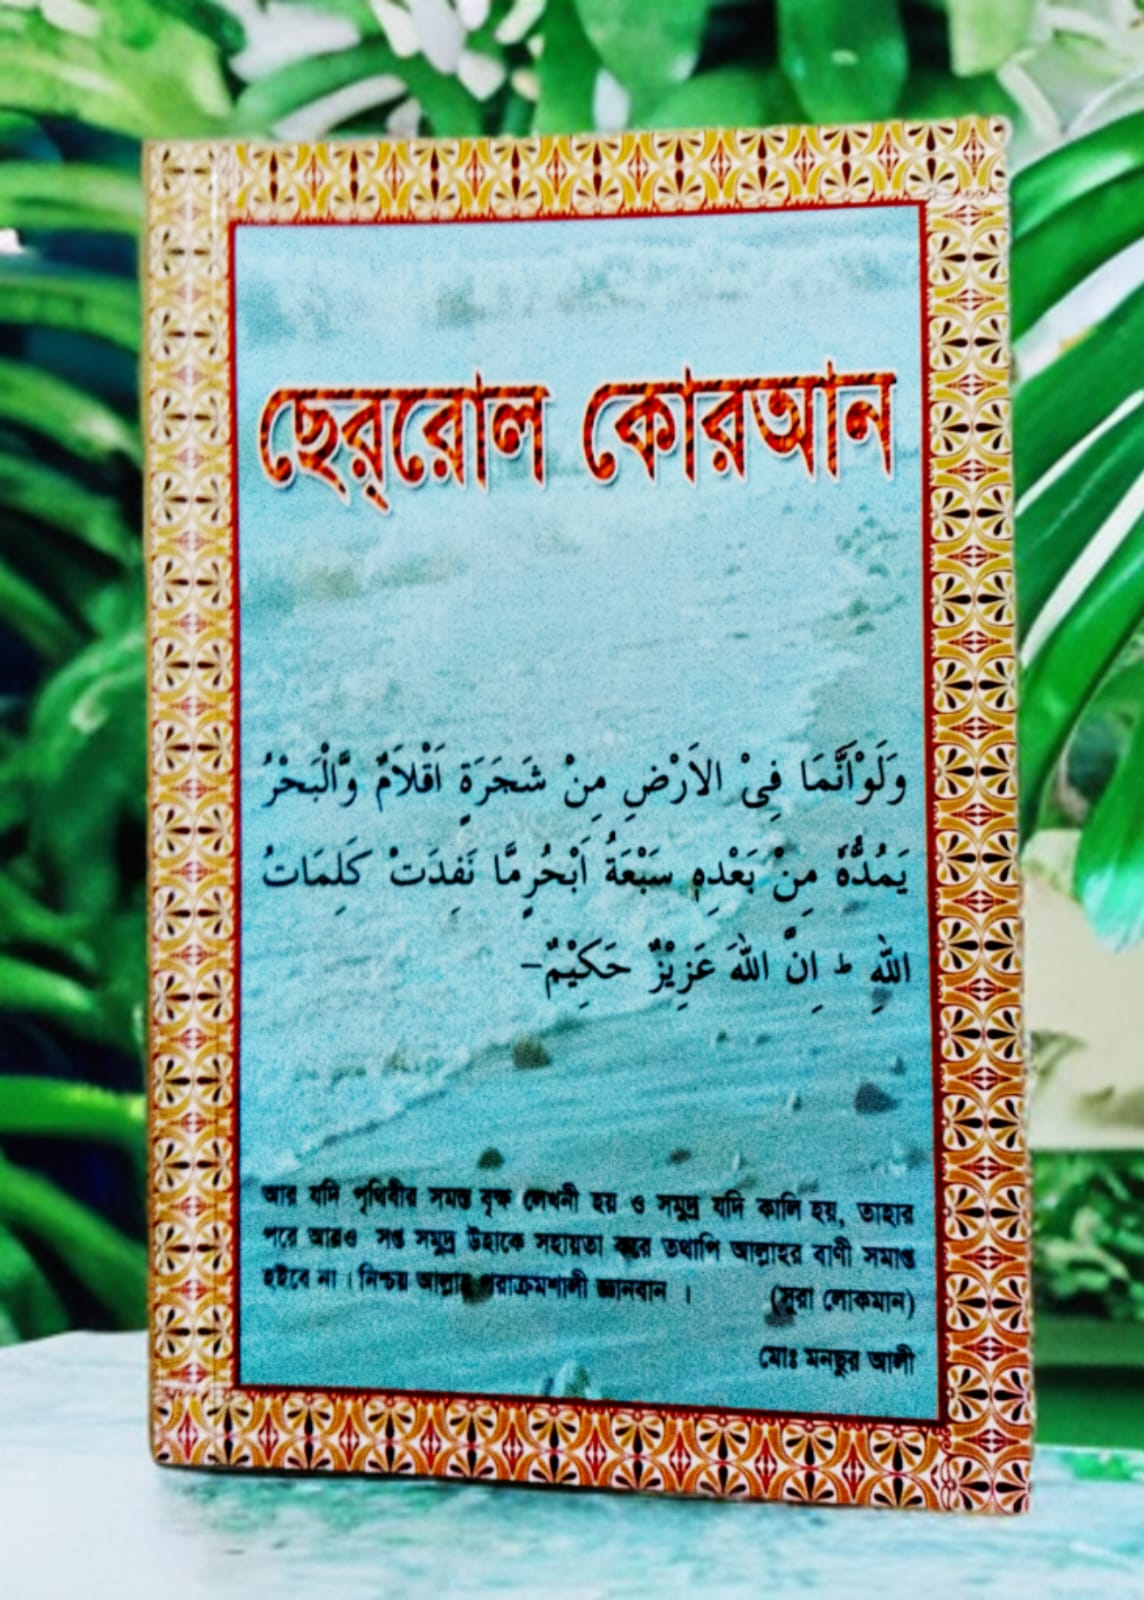 ছের্‌রোল কোরআন
وَلَوْاَنَّمَا فِىْ الاَرْضِ مِنْ شَجَرَةٍ اَقْلاَمٌ وَّالْبَحْرُ
يَمُدُّهٗ مِنْ بَعْدِهٖ سَبْعَةُ اَبْحُرٍمَّا نَفِدَتْ كَلِمَاتُ
اللّٰهِ ط اِنَّ اللّٰهَ عَزِيْزٌ حَكِيْمٌ–
আর যদি পৃথিবীর সমস্ত বৃক্ষ লেখনী হয় ও সমুদ্র যদি কালি হয়, তাহার
পরে আরও সপ্ত সমুদ্র উহাকে সহায়তা করে তথাপি আল্লাহর বাণী সমাপ্ত
হইবে না । নিশ্চয় আল্লাহ পরাক্রমশালী জ্ঞানবান । (সূরা লোকমান)
মোঃ মনছুর আলী